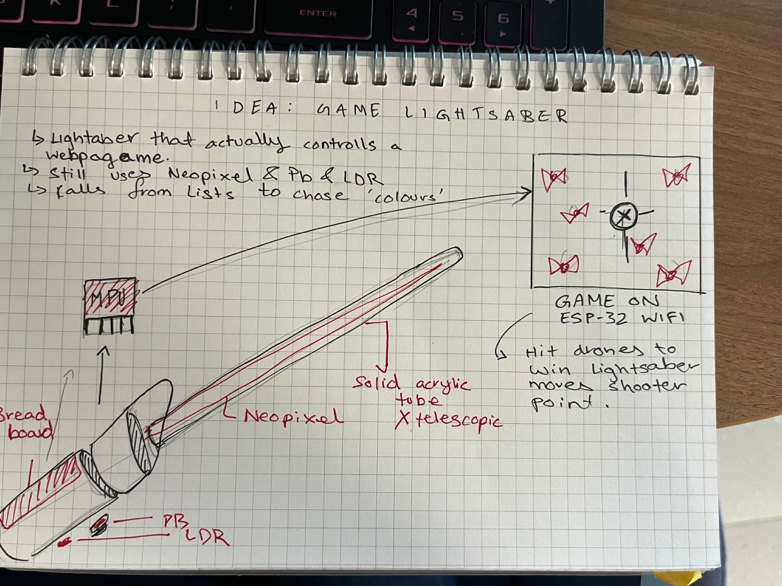 ENTER
4
5
6
IDEA: GAME LIGHTSABER
↳ Lightaber that actually controlls a
webpagame.
↳ Still uses Neopixel & Pb & LDR
↳ Calls from Lists to chose 'colours'
MPU
GAME ON
ESP-32 WIFI
Hit drones to
win Lightsaber
moves shooter
point.
Solid acrylic
tube
X telescopic
Neopixel
Bread
board
PB
LDR